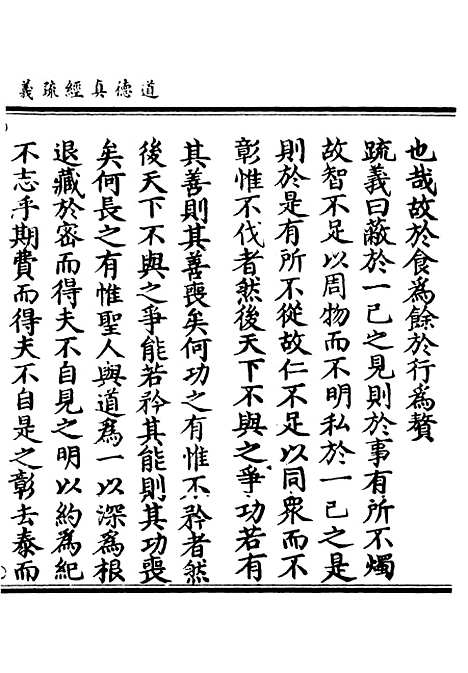 道德真經疏義
也哉故於食爲餘於行爲贅
疏義曰蔽於一已之見則於事有所不燭
故智不足以周物而不明私於一已之是
則於是有所不從故仁不足以同衆而不
彰惟不伐者然後天下不與之爭功若有
其善則其善喪矣何功之有惟不矜者然
後天下不與之爭能若矜其能則其功喪
矣何長之有惟聖人與道爲一以深爲根
退藏於密而得夫不自見之明以約爲紀
不志乎期費而得夫不自是之彰去泰而